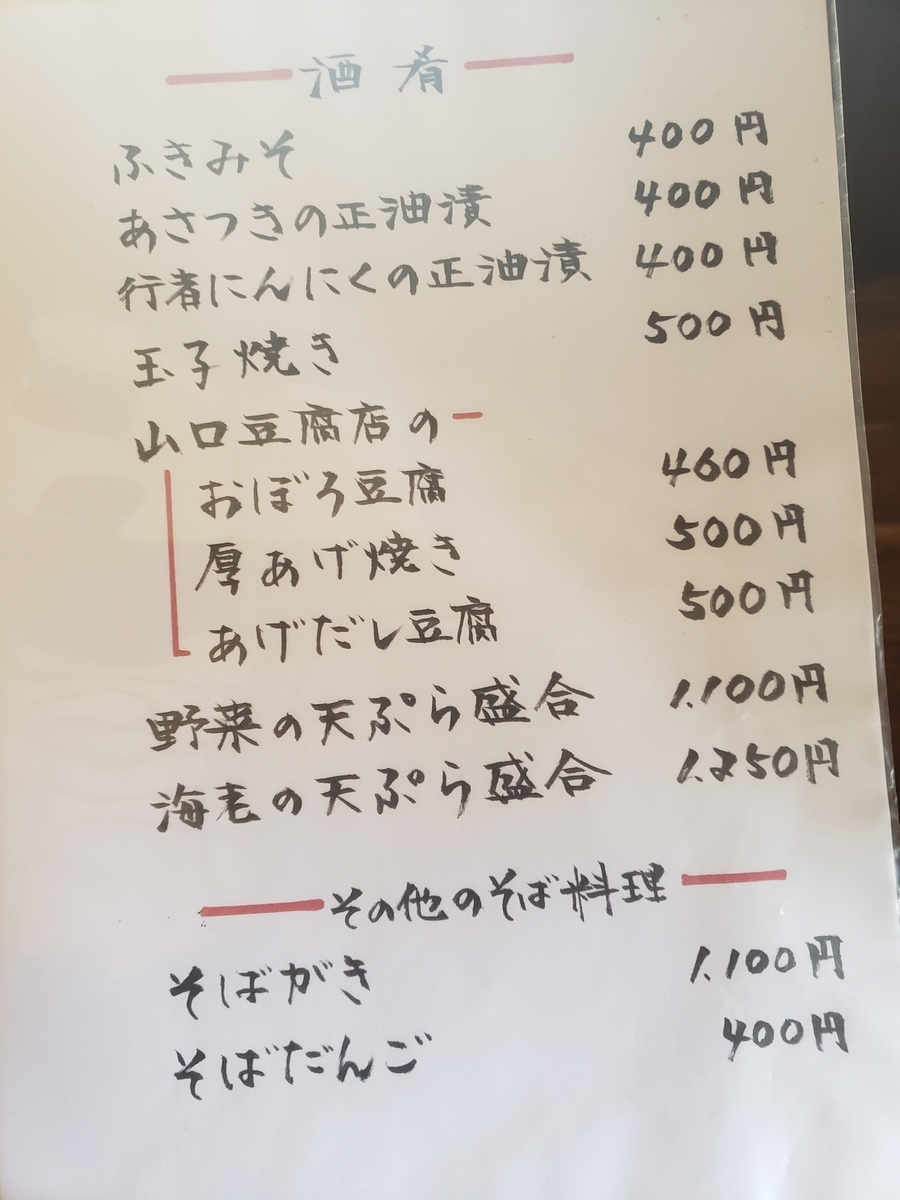 酒肴
ふきみそ 400円
あさつきの正油漬 400円
行者にんにくの正油漬 400円
玉子焼き 500円
山口豆腐店の
おぼろ豆腐 460円
厚あげ焼き 500円
あげだし豆腐 500円
野菜の天ぷら盛合 1.100円
海老の天ぷら盛合 1.250円
その他のそば料理
そばがき 1.100円
そばだんご 400円